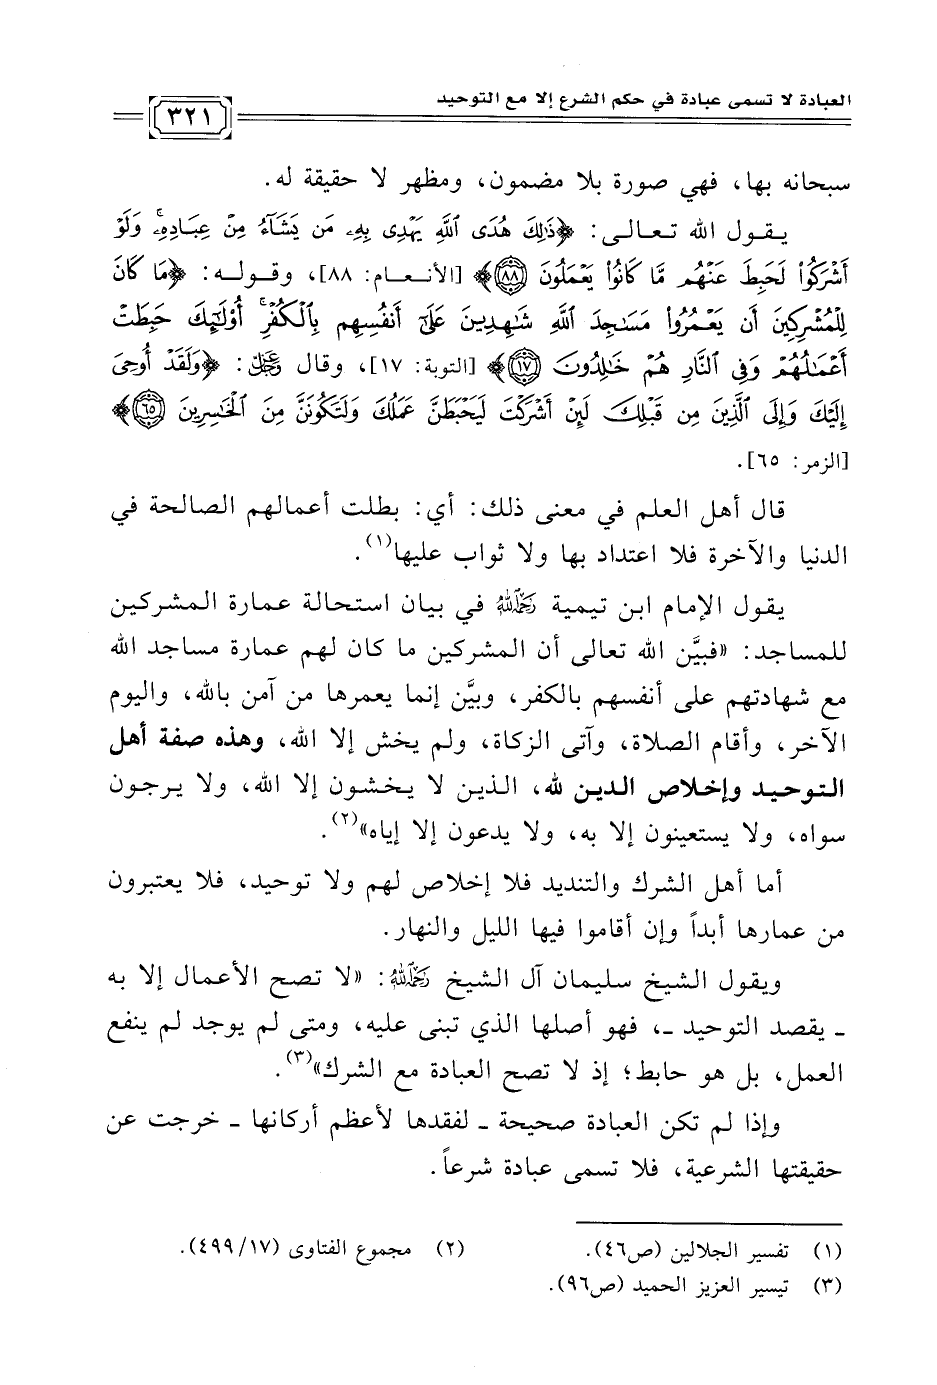 العبادة لا تسمى عبادة في حكم الشرع إلا مع التوحيد
٣٢١
سبحانه بها، فهي صورة بلا مضمون، ومظهر لا حقيقة له.
يقول الله تعالى: ﴿ذَٰلِكَ هُدَى ٱللَّهِ يَهْدِى بِهِۦ مَن يَشَآءُ مِنْ عِبَادِهِۦۚ وَلَوْ
أَشْرَكُوا۟ لَحَبِطَ عَنْهُم مَّا كَانُوا۟ يَعْمَلُونَ ٨٨﴾ [الأنعام: ٨٨]، وقوله: ﴿مَا كَانَ
لِلْمُشْرِكِينَ أَن يَعْمُرُوا۟ مَسَٰجِدَ ٱللَّهِ شَٰهِدِينَ عَلَىٰٓ أَنفُسِهِم بِٱلْكُفْرِۚ أُو۟لَٰٓئِكَ حَبِطَتْ
أَعْمَٰلُهُمْ وَفِى ٱلنَّارِ هُمْ خَٰلِدُونَ ١٧﴾ [التوبة: ١٧]، وقال عزَّوجلَّ: ﴿وَلَقَدْ أُوحِىَ
إِلَيْكَ وَإِلَى ٱلَّذِينَ مِن قَبْلِكَ لَئِنْ أَشْرَكْتَ لَيَحْبَطَنَّ عَمَلُكَ وَلَتَكُونَنَّ مِنَ ٱلْخَٰسِرِينَ ٦٥﴾
[الزمر: ٦٥].
قال أهل العلم في معنى ذلك: أي: بطلت أعمالهم الصالحة في
الدنيا والآخرة فلا اعتداد بها ولا ثواب عليها(١).
يقول الإمام ابن تيمية رَحِمَهُ اللهُ في بيان استحالة عمارة المشركين
للمساجد: «فبيَّن الله تعالى أن المشركين ما كان لهم عمارة مساجد الله
مع شهادتهم على أنفسهم بالكفر، وبيَّن إنما يعمرها من آمن بالله، واليوم
الآخر، وأقام الصلاة، وآتى الزكاة، ولم يخش إلا الله، وهذه صفة أهل
التوحيد وإخلاص الدين لله، الذين لا يخشون إلا الله، ولا يرجون
سواه، ولا يستعينون إلا به، ولا يدعون إلا إياه»(٢).
أما أهل الشرك والتنديد فلا إخلاص لهم ولا توحيد، فلا يعتبرون
من عمارها أبداً وإن أقاموا فيها الليل والنهار.
ويقول الشيخ سليمان آل الشيخ رَحِمَهُ اللهُ: «لا تصح الأعمال إلا به
ـ يقصد التوحيد ـ، فهو أصلها الذي تبنى عليه، ومتى لم يوجد لم ينفع
العمل، بل هو حابط؛ إذ لا تصح العبادة مع الشرك»(٣).
وإذا لم تكن العبادة صحيحة ـ لفقدها لأعظم أركانها ـ خرجت عن
حقيقتها الشرعية، فلا تسمى عبادة شرعاً.
(١) تفسير الجلالين (ص٤٦). (٢) مجموع الفتاوى (١٧/ ٤٩٩).
(٣) تيسير العزيز الحميد (ص٩٦).